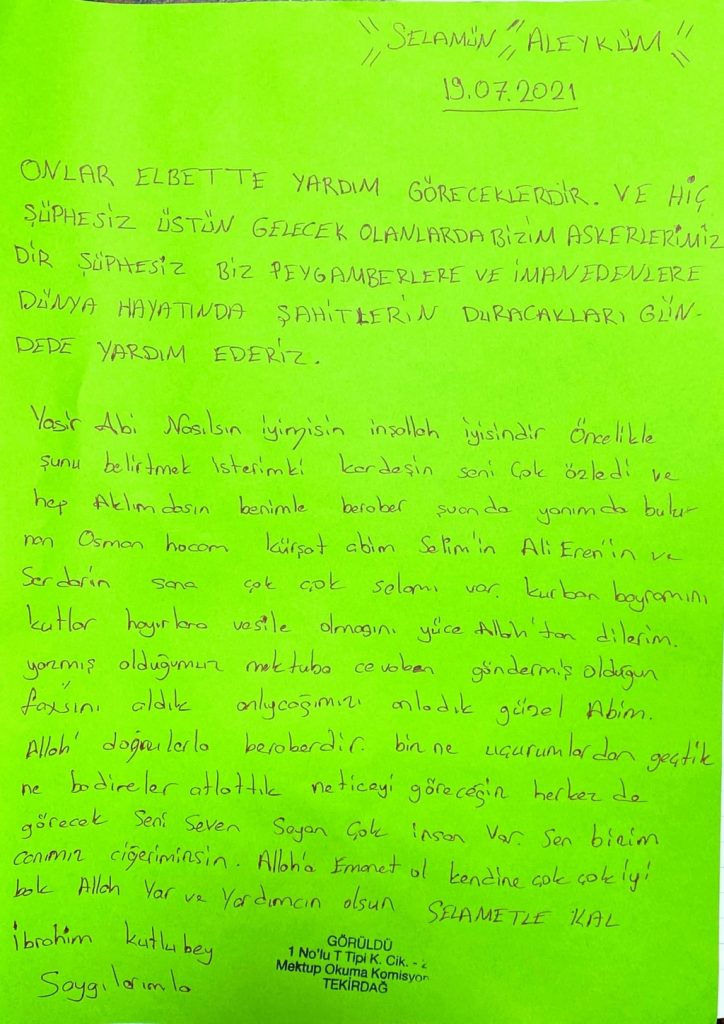 "SELAMÜN" ALEYKÜM"
19.07.2021
ONLAR ELBETTE YARDIM GÖRECEKLERDİR. VE HİÇ
ŞÜPHESİZ ÜSTÜN GELECEK OLANLARDA BİZİM ASKERLERİMİZ
DİR ŞÜPHESİZ BİZ PEYGAMBERLERE VE İMAN EDENLERE
DÜNYA HAYATINDA ŞAHİTLERİN DURACAKLARI GÜN-
DEDE YARDIM EDERİZ.
Yasir Abi Nasılsın iyimisin inşallah iyisindir Öncelikle
şunu belirtmek isterimki kardeşin seni çok özledi ve
hep Aklımdasın benimle beraber şuanda yanımda bulu-
nan Osman hocam kürşat abim Selim'in Ali Eren'in ve
Serdarin sana çok çok selamı var. kurban bayramını
kutlar hayırlara vesile olmasını yüce Allah'tan dilerim.
yazmış olduğumuz mektuba cevaben göndermiş olduğun
faxsını aldık anlıycağımızı anladık güzel Abim.
Allah' doğrularla beraberdir. biz ne uçurumlardan geçtik
ne badireler atlattık neticeyi göreceğiz herkez de
görecek Seni Seven Sayan Çok insan Var. Sen bizim
canımız ciğerimizsin. Allah'a Emanet ol kendine çok çok iyi
bak Allah Yar ve Yardımcın olsun SELAMETLE KAL
İbrahim kutlubey
Saygılarımla
GÖRÜLDÜ
1 No'lu T Tipi K. Cik. -
Mektup Okuma Komisyon
TEKİRDAĞ